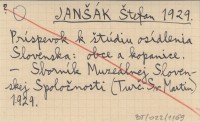 JANŠÁK Štefan 1929.
Príspevok k štúdiu osídlenia
Slovenska: obce a kopanice.
– Sborník Muzeálnej Sloven-
skej Spoločnosti (Turč. Sv. Martin)
1929.